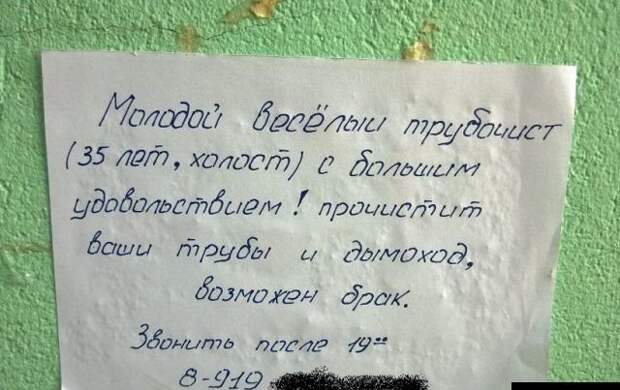 Молодой весёлый трубочист
(35 лет, холост) с большим
удовольствием! прочистит
ваши трубы и дымоход,
возможен брак.
Звонить после 19⁰⁰
8-919